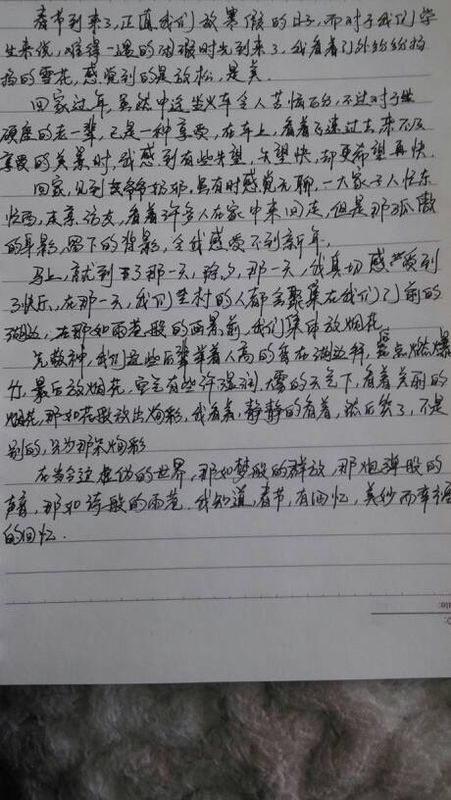 春节到来了,正值我们放寒假的日子,而对于我们学
生来说,难得一遇的闲暇时光到来了,我看着门外纷纷扬
扬的雪花,感觉到的是放松,是美.
回家过年,虽然中途坐火车令人苦恼万分,不过对于坐
硬座的老一辈,已是一种享受,在车上,看着飞速过去,来不及
享受的美景时,我感到有些失望,失望快,却更希望再快.
回家,见到爷爷奶奶,虽有时感觉无聊,一大家子人忙东
忙西,走亲访友,看着许多人在家中来回走,但是那孤傲
的身影,留下的背影,令我感受不到新年.
马上,就到了那一天,除夕,那一天,我真切感受到
了快乐,在那一天,我们全村的人都会聚集在我们门前的
湖边,在那如雨巷般的画景前,我们集中放烟花.
先敬神,我们这些后辈举着人高的香在湖边拜,点燃爆
竹,最后放烟花,空气有些许湿润,雪的天气下,看着美丽的
烟花,那如花般放出绚彩,我看着,静静的看着,然后笑了,不是
别的,只为那朵绚彩
在这虚伪的世界,那如梦般的群放,那炮弹般的
声音,那如诗般的雨巷.我知道,春节,有回忆,美妙而幸福
的回忆.